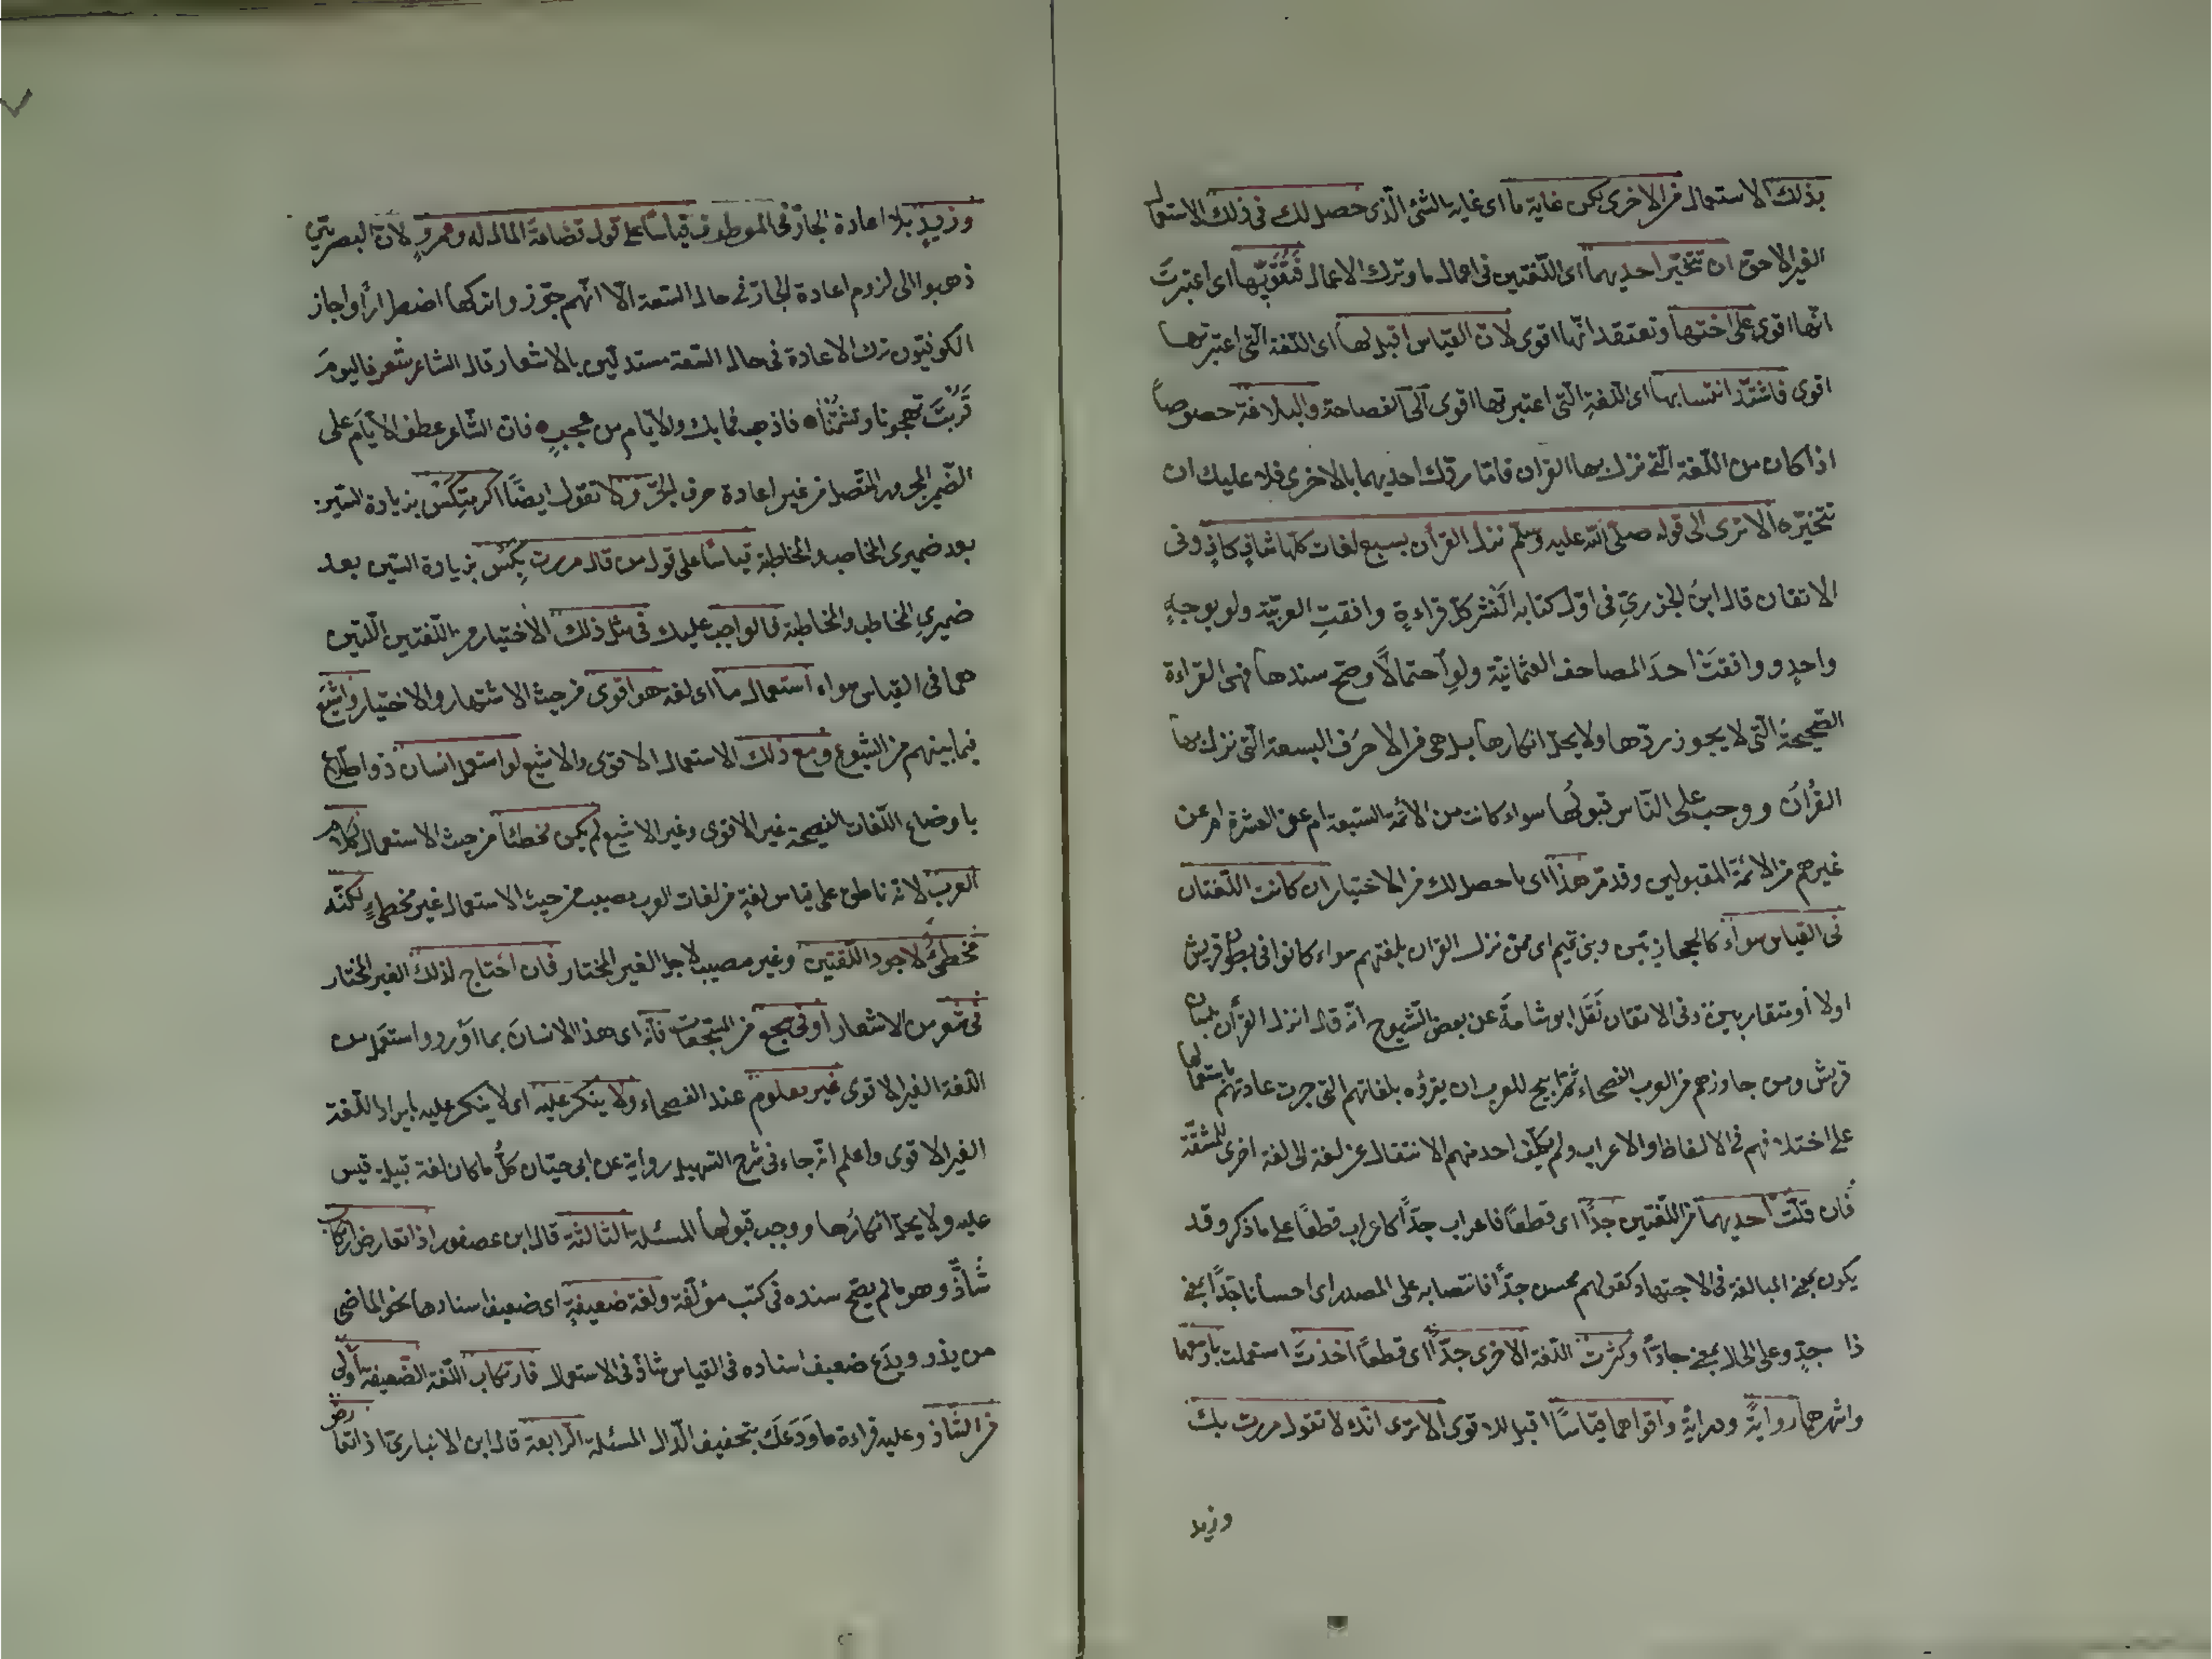 بذلك الاستعمال من الاخرى لكن غاية ما اى غاية الشئ الّذى حصل لك فى ذلك الاستعمال
الغير الاحق ان تتخيّر احديهما اى اللّغتين فى اعمال ما وترك الاعمال فتقوّيها اى اعتبرت
انّها اقوى على اختها وتعتقد انّها اقوى لانّ القياس اقبل لها اى اللّغة الّتى اعتبرتها
اقوى فاشتدّ انتسابها اى اللّغة الّتى اعتبرتها اقوى الى الفصاحة والبلاغة خصوصاً
اذا كان من اللّغة الّتى نزل بها القران فامّا ردّك احديهما بالاخرى فلا عليك ان
تتخيّره الا ترى الى قوله صلّى الله عليه وسلّم نزل القرأن بسبع لغات كلّها شافٍ كافٍ وفى
الاتقان قال ابن الجزرىّ فى اوّل كتابه النّشر كلّ قراءةٍ وافقتِ العربيّة ولو بوجهٍ
واحدٍ ووافقتْ احدَ المصاحف العثمانيّة ولو احتمالًا وصحّ سندها فهى القراءة
الصّحيحة الّتى لا يجوز ردّها ولا يحلّ انكارها بل هى من الاحرف السبعة الّتى نزل بها
القُرانُ ووجب على النّاس قبولُها سواء كانت من الأئمّة السّبعة ام عن العشرة ام عن
غيرهم من الائمّة المقبولين وقد مرّ هذا اى ما حصل لك من الاختيار ان كانت اللّغتان
فى القياس سواءً كالحجازيّين وبنى تميم اى ممّن نزل القران بلغتهم سواء كانوا فى بطون قريش
اولا أو متقاربتين وفى الاتقان نَقَل ابو شامةَ عن بعض الشّيوخ انّه قال انزل القرأن بلسان
قريش ومن جاورهم من العرب الفصحاء ثمّ ابيح للعرب ان يقرؤه بلغاتهم التى جرت عادتهم باستعمالها
على اختلافهم فى الالفاظ والاعراب ولم يكلّف احد منهم الانتقال عن لغة الى لغة اخرى للمشقّة
فان قلّت احديهما من اللّغتين جدًّا اى قطعًا فاعراب جدًّا كاعراب قطعًا على ما ذكر وقد
يكون بمعنى المبالغة فى الاجتهاد كقولهم محسن جدًّا فانتصابه على المصدر اى احسانا جدًّا بمعنى
ذا جدٍّ وعلى الحال بمعنى جادًّا وكثرت اللّغة الاخرى جدًّا اى قطعاً اخذتَ استعملت باوسعهما
واشهرهما روايةً ودرايةً واقواهما قياسًا اقبل للاقوى الا ترى انّك لا تقول مررت بك
وزيد
وزيدٍ بلا اعادة الجارّ فى المعطوف قياسًا على قول قضاعة المال له وعمروٍ لانّ البصريّين
ذهبوا الى لزوم اعادة الجارّ فى حال السّعة الّا انّهم جوّزوا تركها اضطراراً واجاز
الكوفيّون ترك الاعادة فى حال السّعة مستدلّين بالاشعار قال الشاعر شعر فاليومَ
قَرَّبتَ تهجونا وتشتُمُنا فاذهب فما بك والايّامِ من عجبٍ فانّ الشّاعر عطف الايّام على
الضّمير المجرور المتّصل من غير اعادة حرف الجرّ ولا تقول ايضًا اكرمتكِسْ بزيادة السّين
بعد ضميرى المخاطب والمخاطبة قياسًا على قول من قال مررت بكِسْ بزيادة السّين بعد
ضميرىِ المخاطب والمخاطبة فالواجب عليك فى مثل ذلك الاختيار من اللّغتين اللّتين
هما فى القياس سواء استعمال ما اى لغة هو اقوى من حيث الاشتهار والاختيار واشيَع
فيما بينهم من الشّيوع ومع ذلك الاستعمال الاقوى والاشيع لو استعمل انسان ذو اطلاع
باوضاع اللّغات الفصيحة غير الاقوى وغير الاشيع لم يكن مخطئا من حيث الاستعمال لكلام
العرب لانّه ناطق على قياس لغةٍ من لغات العرب مصيب من حيث الاستعمال غير مخطىءٍ لكنّه
مخطئٌ لاجود اللّغتين وغير مصيب لاجل الغير المختار فان احتاج لذلك الغير المختار
فى شعر من الاشعار او فى سجع من السّجعات فانّه اى هذا الانسانَ بما اورد واستعمل من
اللّغة الغير الاقوى غير معلوم عند الفصحاء ولا ينكر عليه اى لا ينكر عليه بايراد اللّغة
الغير الاقوى واعلم انّه جاء فى شرح التّسهيل رواية عن ابى حيّان كلّ ما كان لغة قبيلة قيس
عليه ولا يحلّ انكارُها ووجب قبولها المسئلة الثالثة قال ابن عصفور اذا تعارض ارتكاب
شاذّ وهو ما لم يصحّ سنده فى كتب مؤلّفة ولغة ضعيفةٍ اى ضعيف اسنادها نحو الماضى
من يذر ويدَع ضعيف اسناده فى القياس شاذّ فى الاستعمال فارتكاب اللّغة الضّعيفة اولى
من الشّاذ وعليه قراءة ما وَدَعَك بتخفيف الدّال المسئلة الرّابعة قال ابن الانبارىّ اذا تعارض